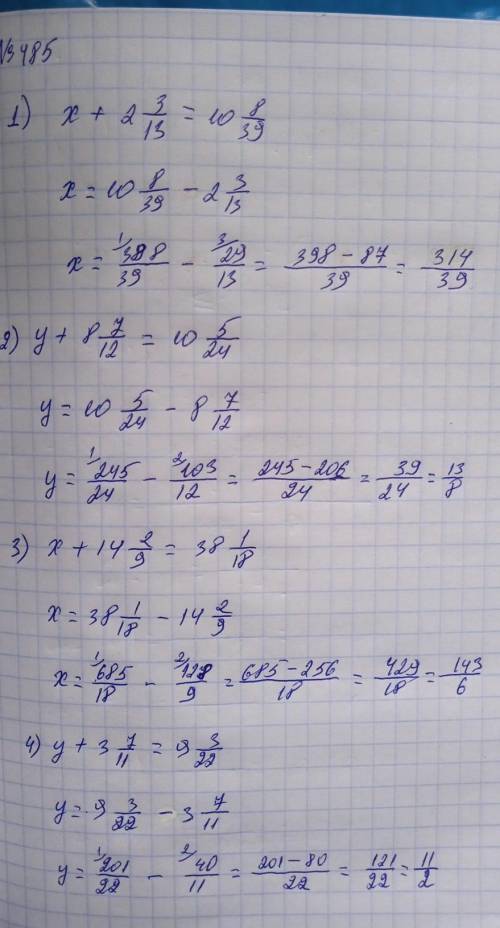 №485
1) x + 2 3/13 = 10 8/39
x = 10 8/39 - 2 3/13
x = ¹/398/39 - ³/29/13 = (398 - 87)/39 = 314/39
2) y + 8 7/12 = 10 5/24
y = 10 5/24 - 8 7/12
y = ¹/245/24 - ²/103/12 = (245 - 206)/24 = 39/24 = 13/8
3) x + 14 2/9 = 38 1/18
x = 38 1/18 - 14 2/9
x = ¹/685/18 - ²/128/9 = (685 - 256)/18 = 429/18 = 143/6
4) y + 3 7/11 = 9 3/22
y = 9 3/22 - 3 7/11
y = ¹/201/22 - ²/40/11 = (201 - 80)/22 = 121/22 = 11/2